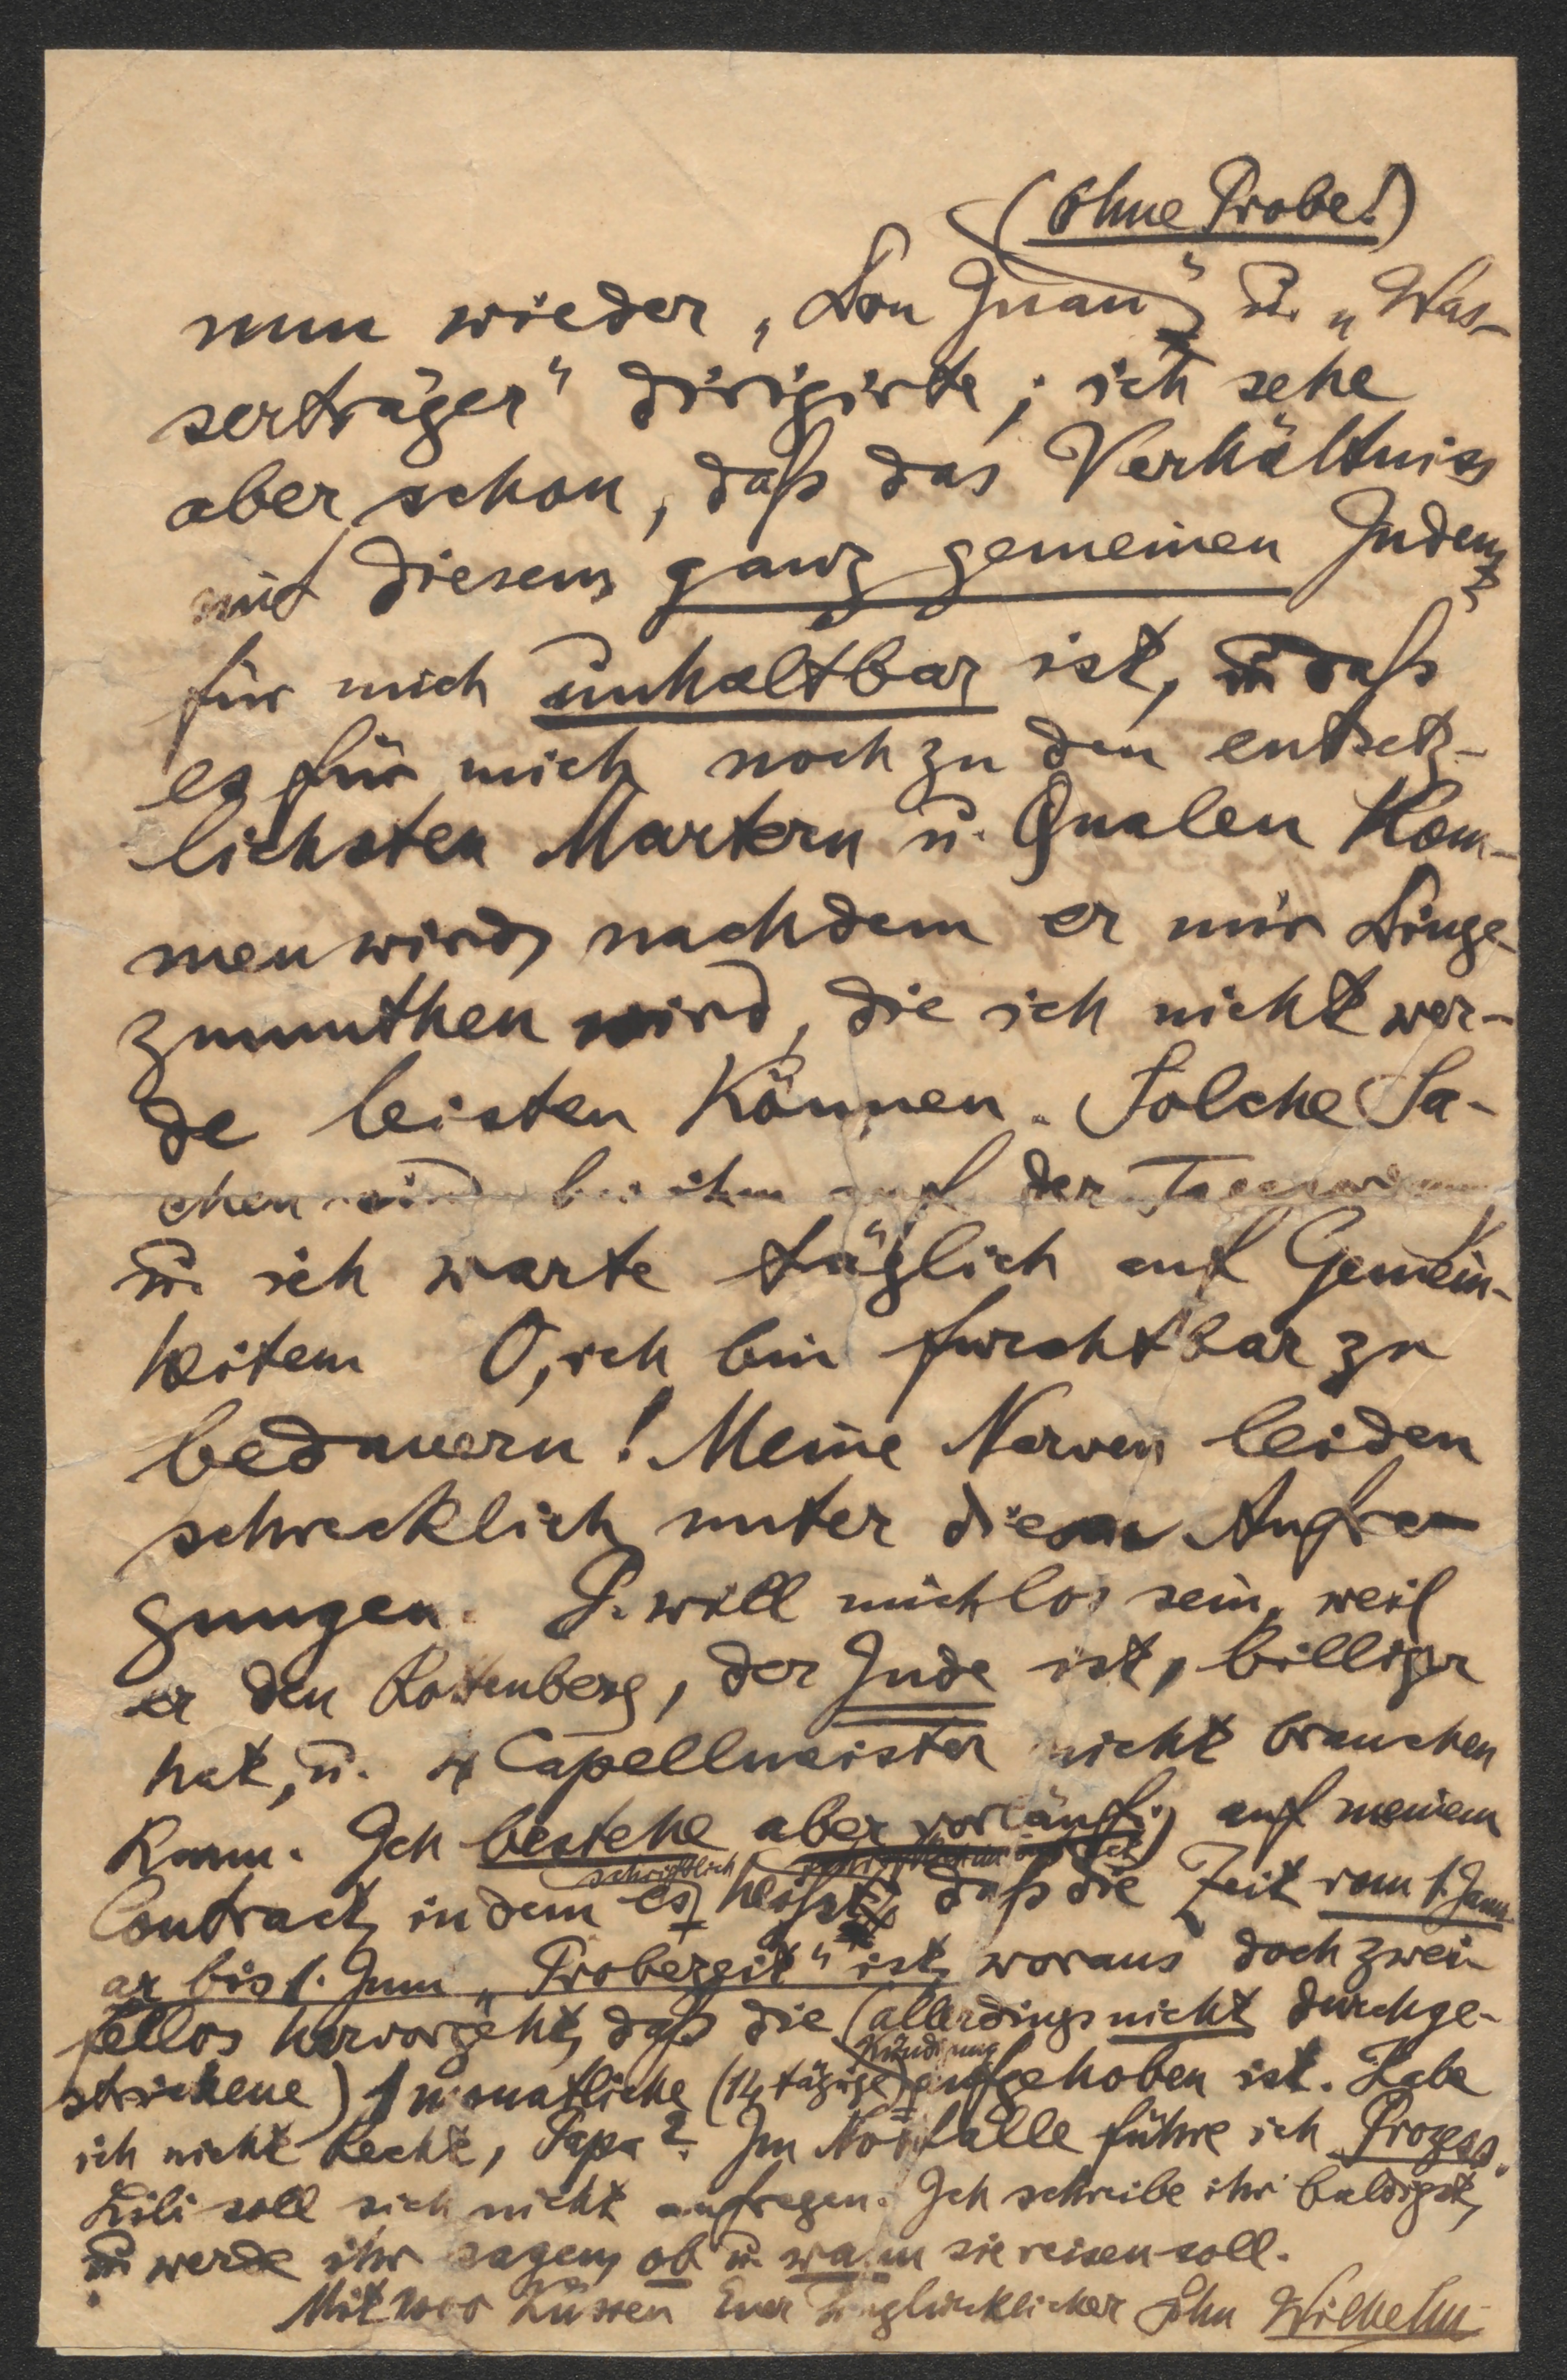 (ohne Probe!)
nun wieder „Don Juan“ u. „Was-
serträger“ dirigirte; ich sehe
aber schon, daß das Verhältniss
mit diesem ganz gemeinen Juden
für mich unhaltbar ist, u. daß
es für mich noch zu den entsetz-
lichsten Martern u. Qualen kom-
men wird, nachdem er mir Dinge
zumuthen wird, die ich nicht wer-
de leisten können. Solche Sa-
chen sind bei ihm auf der
u. ich warte täglich auf Gemein-
heiten. O, ich bin furchtbar zu
bedauern! Meine Nerven leiden
schrecklich unter diesen Aufre-
gungen. P. will mich los sein, weil
er den Rottenberg, der Jude ist, billiger
hat, u. 4 Capellmeister nicht brauchen
kann. Ich bestehe aber vorläufig auf meinem
schriftlich
Contract, in dem es heißt, daß die Zeit vom 1. Janu-
ar bis 1. Juni „Probezeit“ ist, woraus doch zwei-
fellos hervorgeht, daß die (allerdings nicht durchge-
Kündigung
strichene) 1 monatliche (14 tägige) aufgehoben ist. Habe
ich nicht Recht, Papa? Im Nothfalle führe ich Prozess.
Lili soll sich nicht aufregen. Ich schreibe ihr baldigst,
u. werde ihr sagen, ob u. wann sie reisen soll.
Mit 1000 Küssen Euer Unglücklicher Sohn Wilhelm